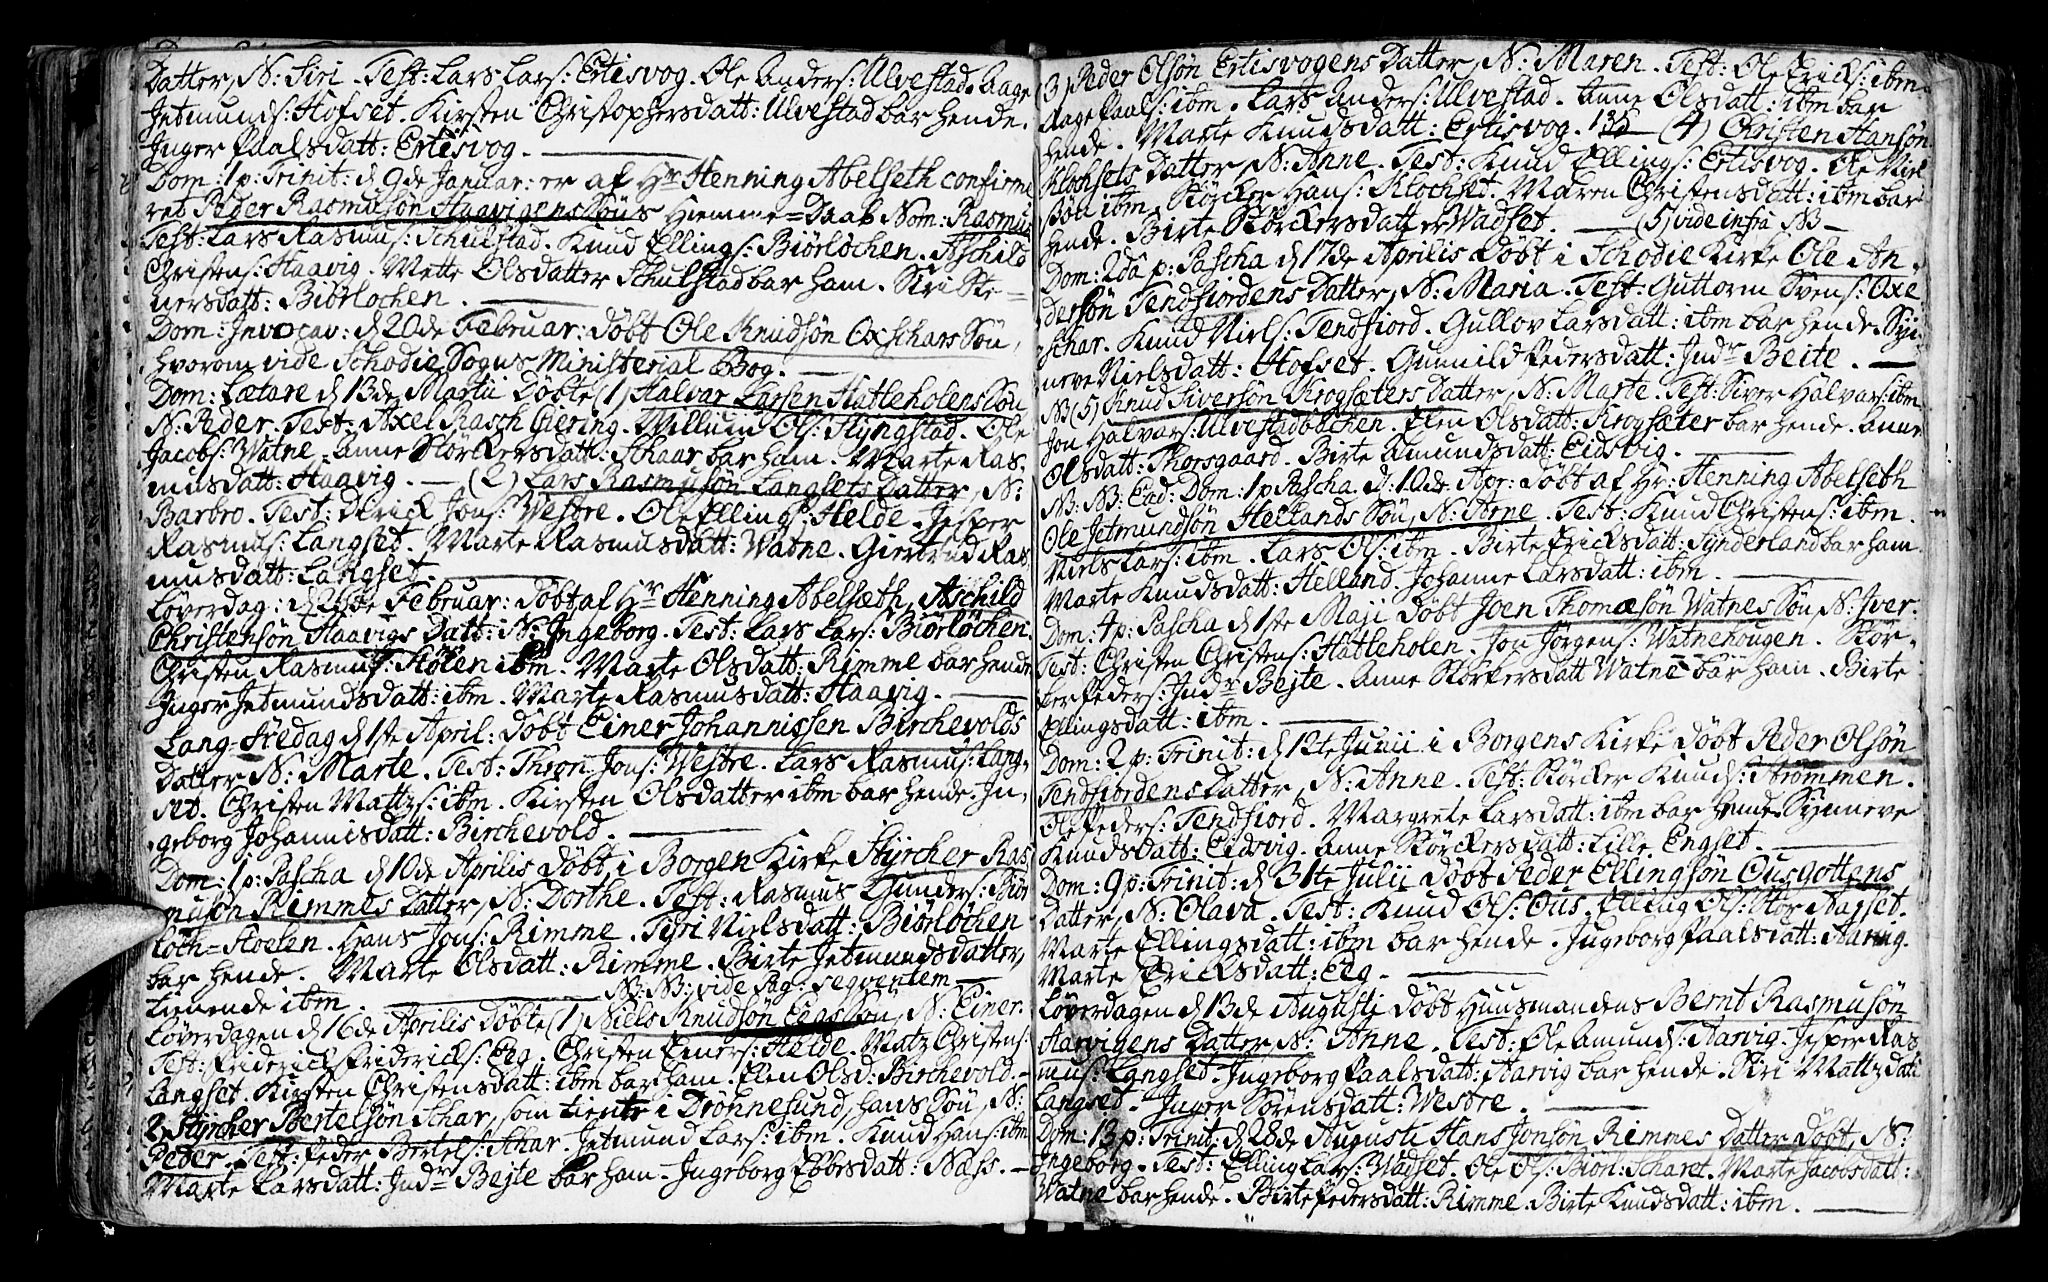 Datter, N: Siri. Test: Lars Lars: Ertisvog. Ole Anders: Ulvestad. Aage
Jetmunds: Hofset. Kirsten Christophersdatt: Ulvestad bar hende.
Inger Paalsdatt: Ertisvog.
Dom: 1 p: Trinit: d 9de Januar: er af Hr Henning Abelseth confirme
ret Peder Rasmusøn Haavigens Søns Hiemme=Daab Nom: Rasmus
Test: Lars Rasmus: Schulstad. Knud Ellings: Biørløchen. Aschild
Christens: Haavig. Mette Olsdatter Schulstad bar ham. Siri Ste=
nersdatt: Biørlochen.
Dom: Invocav: d 20de Februar: døbt Ole Knudsøn Oxschars Søn,
hvorom vide Schodie Sogns Ministerial Bog.
Dom: Lætare d 13de Martii døbte (1) Halvar Larsen Hatteholens Søn
N: Peder. Test: Axel Rasch Giering. Willum Ols: Ryngstad. Ole
Jacobs: Watne. Anne Størkersdatt: Schaar bar ham. Marte Ras,
musdatt: Haavig. (2) Lars Rasmusøn Langsets Datter, N:
Barbro. Test: Dirick Jons: Westre. Ole Ellings: Helde. Jesper
Rasmus: Langset. Marte Rasmusdatt: Watne. Giertrud Ras
musdatt: Langset
Løverdag: d 26de Februar: døbt af Hr Henning Abelsæth, Aschild
Christensøn Haavigs Datt: N: Ingeborg. Test: Lars Lars: Biørløchen.
Christen Rasmus: Stølen ibm. Marte Olsdatt: Rimme bar hende
Inger Jetmundsdatt: ibm. Marte Rasmusdatt: Haavig.
Lang=Fredag d 1ste April: døbt Einer Johannissen Birchevolds
Datter N: Marte. Test: Thron Jons: Westre. Lars Rasmus: Lang,
set. Christen Mattzs: ibm. Kirsten Olsdatter ibm bar hende. In,
geborg Johannisdatt: Birchevold.
Dom: 1 p: Pascha d 10de Aprilis døbt i Borgen Kirke Styrcher Ras,
musøn Rimmes Datter, N: Dorthe. Test: Rasmus Gunders: Biør
løch=Stoelen. Hans Jons: Rimme. Siri Nielsdatt: Biørløchen
bar hende. Marte Olsdatt: Rimme. Birte Jetmundsdatter,
tienende ibm. NB: NB: vide Pag: seqventem
Løverdagen d 16de Aprilis døbte (1) Niels Knudsøn Eegs Søn, N: Einer.
Test: Friderick Fridericks: Eeg. Christen Einers: Helde. Matz Christens:
Langset. Kirsten Christensdatt: ibm bar ham. Elen Olsd: Birchevold.
2 Styrcher Bertelsøn Schar, som tiente i Drøhnesund, hans Søn, N:
Peder. Test: Peder Bertels: Schar. Jetmund Lars: ibm. Knud Hans: ibm
Marte Larsdatt: Indr Bejte bar ham. Ingeborg Ebbesdatt: Næss.
(3) Peder Olsøn Ertisvogens Datter, N: Maren. Test: Ole Ericks: ibm.
Aage Paals: ibm. Lars Anders: Ulvestad. Anne Olsdatt: ibm bar
hende. Marte Knudsdatt: Ertisvog. 135 (4) Christen Hansøn
Klochsets Datter, N: Anne. Test: Knud Ellings: Ertisvog. Ole Niel
søn ibm. Størcker Hans: Klochset. Maren Christensdatt: ibm bar
hende. Birte Størckersdatter Wadset. (5) vide infra NB
Dom: 2da p: Pascha d 17de Aprilis døbt i Schodie Kirke Ole An,
dersøn Tendfiordens Datter, N: Maria. Test: Guttorm Svens: Oxe
schar. Knud Niels: Tendfiord. Gullov Larsdatt: ibm bar hende. Syn
neve Nielsdatt: Hofset. Gunnild Pedersdatt: Indr Bejte.
NB (5) Knud Siversøn Krogsæters Datter, N: Marte. Test: Siver Halvars: ibm.
Jon Halvars: Ulvestadbøchen. Elen Olsdatt: Krogsæter bar hende. Anne
Olsdatt: Thorsgaard. Birte Amundsdatt: Eidsvig.
NB: NB: Ead: Dom: 1 p Pascha d: 10de Apr: døbt af Hr: Henning Abelseth
Ole Jetmundsøn Hellands Søn, N: Arne. Test: Knud Christens: ibm.
Niels Lars: ibm. Lars Ols: ibm. Birte Ericksdatt: Synderland bar ham
Marte Knudsdatt: Helland. Johanne Larsdatt: ibm.
Dom: 4 p: Pascha d 1ste Maji døbt Joen Thomæsøn Watnes Søn, N: Iver.
Test: Christen Christens: Hatteholen. Jon Jørgens: Watnehougen. Stør,
ker Peders: Indr Bejte. Anne Størkersdatt Watne bar ham. Birte
Ellingsdatt: ibm.
Dom: 2 p: Trinit: d 12te Junii i Borgens Kirke døbt Peder Olsøn
Tendfiordens Datter, N: Anne. Test: Størcker Knuds: Strømmen.
Ole Peders: Tendfiord. Margrete Larsdatt: ibm bar hende. Synneve
Knudsdatt: Eidsvig. Anne Størckersdatt: Lille Engset.
Dom: 9 p: Trinit: d 31te Julii døbt Peder Ellingsøn Ousgottens
Datter, N: Olava. Test: Knud Ols: Ous. Elling Ols: Stor Aagset.
Marte Ellingsdatt: ibm bar hende. Ingeborg Paalsdatt: Aarvig.
Marte Ericksdatt: Eeg.
Løverdagen d 13de Augusti døbt Huusmandens Bernt Rasmusøn
Aarvigens Datter, N: Anne. Test: Ole Amunds: Aarvig. Jesper Ras
mus: Langset. Ingeborg Paalsdatt: Aarvig bar hende. Siri Mattzdatt
Langsed. Inger Sørensdatt: Westre.
Dom: 13 p: Trinit: d 28de Augusti Hans Jonsøn Rimmes Datter døbt, N:
Ingeborg. Test: Elling Lars: Wadset. Ole Ols: Biørl: Scharet. Marte Jacobsdatt:
Watne bar hende. Birte Pedersdatt: Rimme. Birte Knudsdatt: ibm.